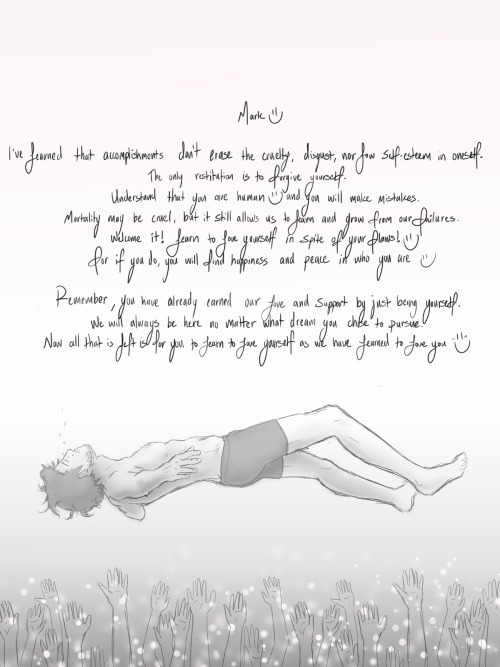 Mark :)
I've learned that accomplishments don't erase the cruelty, disgust, nor low self-esteem in oneself.
The only restitation is to forgive yourself.
Understand that you are human :) and you will make mistakes.
Mortality may be cruel, but it still allows us to learn and grow from our failures.
Welcome it! learn to love yourself in spite of your flaws! :)
for if you do, you will find happiness and peace in who you are :)
Remember, you have already earned our love and support by just being yourself.
We will always be here no matter what dream you chose to pursue.
Now all that is left is for you to learn to love yourself as we have learned to love you :)